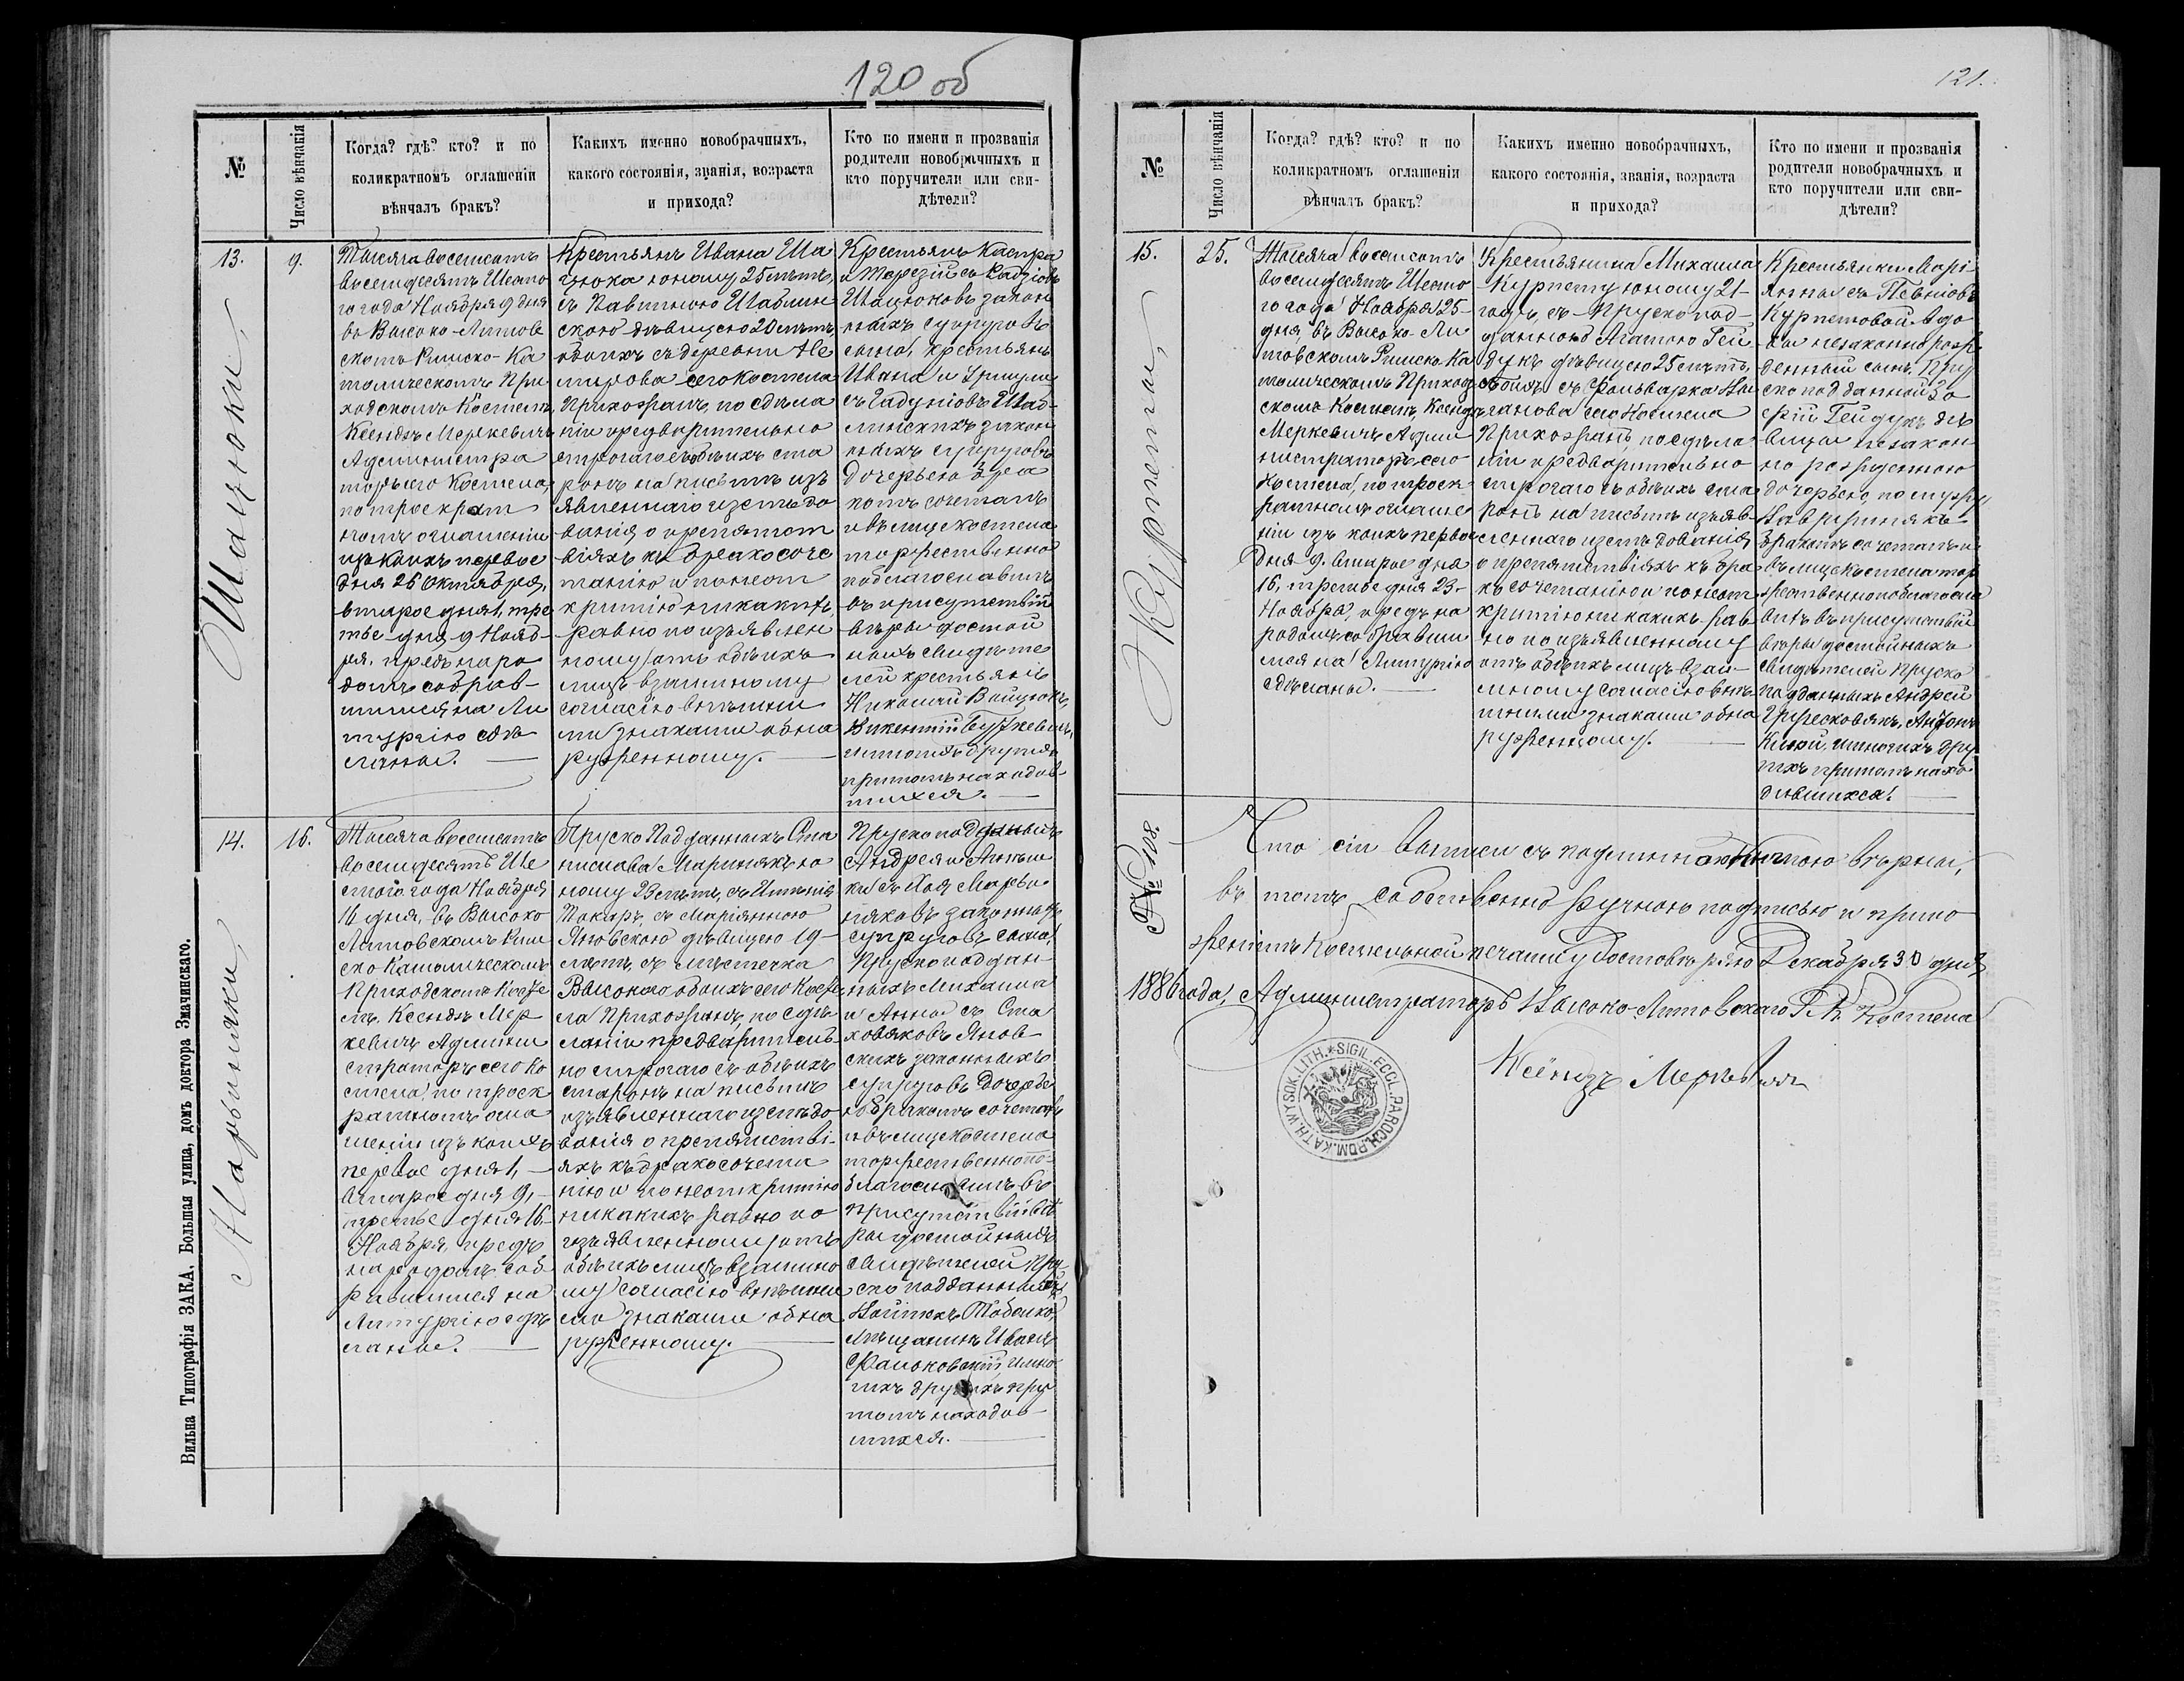 120 об
№
Число вѣнчанія
Когда? гдѣ? кто? и по
коликратномъ оглашеніи
вѣнчалъ бракъ?
Какихъ именно новобрачныхъ,
какого состоянія, званія, возраста
и прихода?
Кто по имени и прозванія
родители новобрачныхъ и
кто поручители или сви-
дѣтели?
13.
9.
Шацюки
Тысяча восемсотъ
восемдесятъ Шесто
го года Ноября 9 дня
въ Высоко-Литов
скомъ Римско-Ка
толическомъ При
ходскомъ Костелѣ
Ксендзъ Меркевичъ
Администра
торъ сего Костела,
по троекрат
номъ оглашеніи
изъ коихъ первое
дня 26 Октября,
второе дня 1, тре
тье дня 9 Нояб-
ря, предъ наро
домъ собрав-
шимся на Ли
тургію сдѣ
ланы.
Крестьянъ Ивана Ша
цюка юношу 25 лѣтъ,
съ Павлиною Шаблин
скою дѣвицею 20 лѣтъ
обоихъ съ деревни Не
мирова сего Костела
Прихожанъ, по сдѣла
ніи предварительно
строгаго съ обѣихъ сто
ронъ на письмѣ изъ
явленнаго изслѣдо
ванія о препятст
віяхъ къ бракосоче
танію и по неот
крытію никакихъ
равно по изъявлен
ному отъ обѣихъ
лицъ взаимному
согласію внѣшни
ми знаками обна
руженному.
Крестьянъ Каспра
и Терезіи съ Кадзіовъ
Шацюковъ закон
ныхъ супруговъ
сына, крестьянъ
Ивана и Уршули
съ Гадуніовъ Шаб-
линскихъ закон
ныхъ супруговъ
дочерью бра
комъ сочеталъ
и въ лицѣ костела
торжественно
поблагословилъ
въ присутствіи
вѣры достой
ныхъ свидѣте
лей крестьянъ
Николай Войцюкъ,
Викентій Буткевичъ,
и многихъ другихъ
притомъ находив
шихся.
14.
16.
Марыняки
Тысяча восемсотъ
восемдесятъ Ше
стого года Ноября
16 дня, въ Высоко
Литовскомъ Рим
ско Католическомъ
Приходскомъ Косте
лѣ Ксендзъ Мер
кевичъ Админи
страторъ сего Ко
стела, по троек
ратномъ огла
шеніи изъ коихъ
первое дня 1,
второе дня 9,
третье дня 16
Ноября, предъ
народомъ соб
равшимся на
Литургію сдѣ
ланы.
Пруско Подданныхъ Ста
нислава Марынякъ ю
ношу 23 лѣтъ, съ Имѣнія
Токаръ, съ Маріянною
Яновскою дѣвицею 19
лѣтъ, съ мѣстечка
Высокого обоихъ сего Косте
ла Прихожанъ, по сдѣ
ланіи предваритель-
но строгаго съ обѣихъ
сторонъ на письмѣ
изъявленнаго изслѣдо
ванія о препятстві
яхъ къ бракосочета
нію и по неоткрытію
никакихъ равно по
изъявленному отъ
обѣихъ лицъ взаимно
му согласію внѣшни
ми знаками обна
руженному.
Прускоподданыхъ
Андрея и
законныхъ
супруговъ сына,
Прускоподдан
ныхъ Михаила
и Анны съ Ста
ховяковъ Янов
скихъ законныхъ
супруговъ дочерью
бракомъ сочеталъ
и въ лицѣ костела
торжественно по-
благословилъ въ
присутствіи вѣ
ры достойныхъ
свидѣтелей пру
ско подданныхъ
Мѣщанинъ Иванъ
Фальковскій, и мно
гихъ другихъ при
томъ находив
шихся.
Вильна Типографія ЗАКА, Большая улица, домъ доктора Змачинскаго.
121.
№
Число вѣнчанія
Когда? гдѣ? кто? и по
коликратномъ оглашеніи
вѣнчалъ бракъ?
Какихъ именно новобрачныхъ,
какого состоянія, званія, возраста
и прихода?
Кто по имени и прозванія
родители новобрачныхъ и
кто поручители или сви-
дѣтели?
15.
25.
Тысяча восемсотъ
восемдесятъ Шесто
го года Ноября 25
дня, въ Высоко Ли
товскомъ Римско Ка
толическомъ Приход
скомъ Костелѣ Ксендзъ
Меркевичъ Адми
нистраторъ сего
Костела, по троек
ратномъ оглаше
ніи изъ коихъ первое
дня 9. второе дня
16, третье дня 23
Ноября, предъ на
родомъ собравши
мся на Литургію
сдѣланы.
Крестьянина Михаила
Курпету юношу 21
годъ, съ Пруско под-
данною Агатою Гей
дукъ дѣвицею 25 лѣтъ,
обоихъ съ Фольварка
сего Костела
Прихожанъ, по сдѣла
ніи предварительно
строгаго съ обѣихъ сто
ронъ на письмѣ изъяв
леннаго изслѣдованія
о препятствіяхъ къ бра
косочетанію и по неот
крытію никакихъ рав
но по изъявленному
отъ обѣихъ лицъ взаи
мному согласію внѣ
шними знаками обна
руженному.
Крестьянки Марі
янны съ Певніовъ
Курпетовой вдо
вы незаконно рож
денный сынъ, Пру
ско подданной Зо
фіи Гейдукъ дѣ
вицы незакон
но рожденною
дочерью, по мужу
бракомъ сочеталъ и
въ лицѣ костела тор
жественно поблагосло
вилъ въ присутствіи
вѣры достойныхъ
свидѣтелей Пруско
подданныхъ Андрей
Антонъ
и многихъ дру
гихъ притомъ нахо
дившихся.
Что сіи выписи съ подлинною Книгою вѣрны,
въ томъ собственно ручною подписью и прило
женіемъ Костельной печати удостовѣряю Декабря 30 дня
1886 года, Администраторъ Высоко-Литовскаго Р. К. Костела
Ксёндзъ Меркевичъ
SIGIL. ECCL. PAROCH. ROM. KATH. WYSOK. LITH.